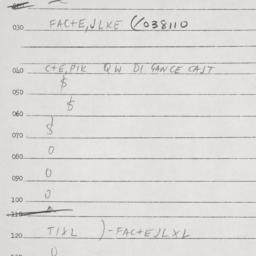 030 FACTE,JLKE (/038110
040 CTE,PIK QW DI GANCE CAST
050 $
060 $
070 $
080 0
090 0
100 0
110
120 TIXL )-FACTEJLXL
0